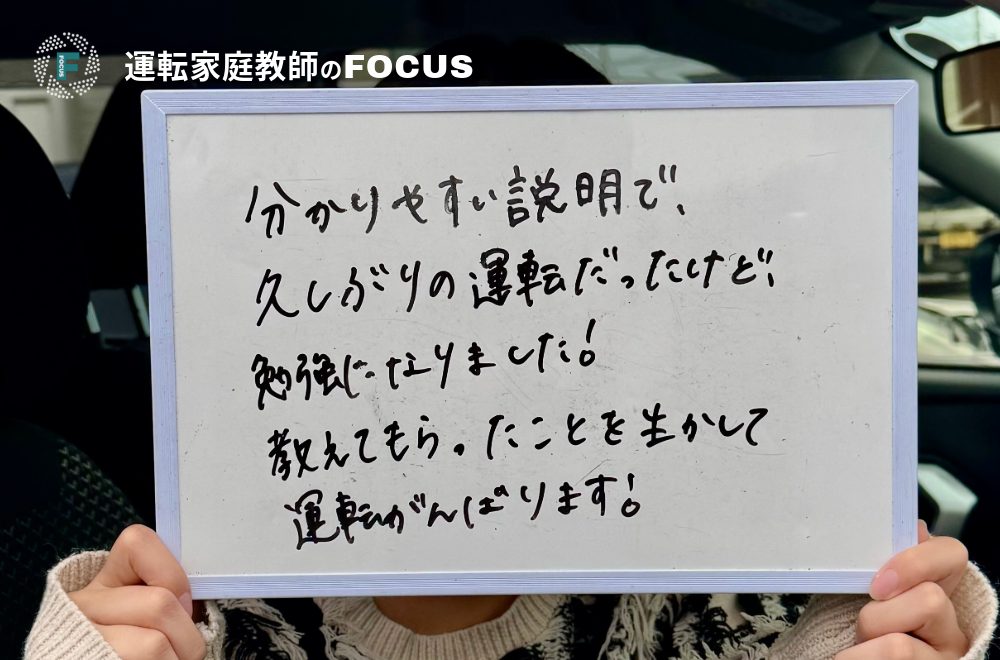 FOCUS
運転家庭教師のFOCUS
分かりやすい説明で、
久しぶりの運転だったけど、
勉強になりました!
教えてもらったことを生かして
運転がんばります!